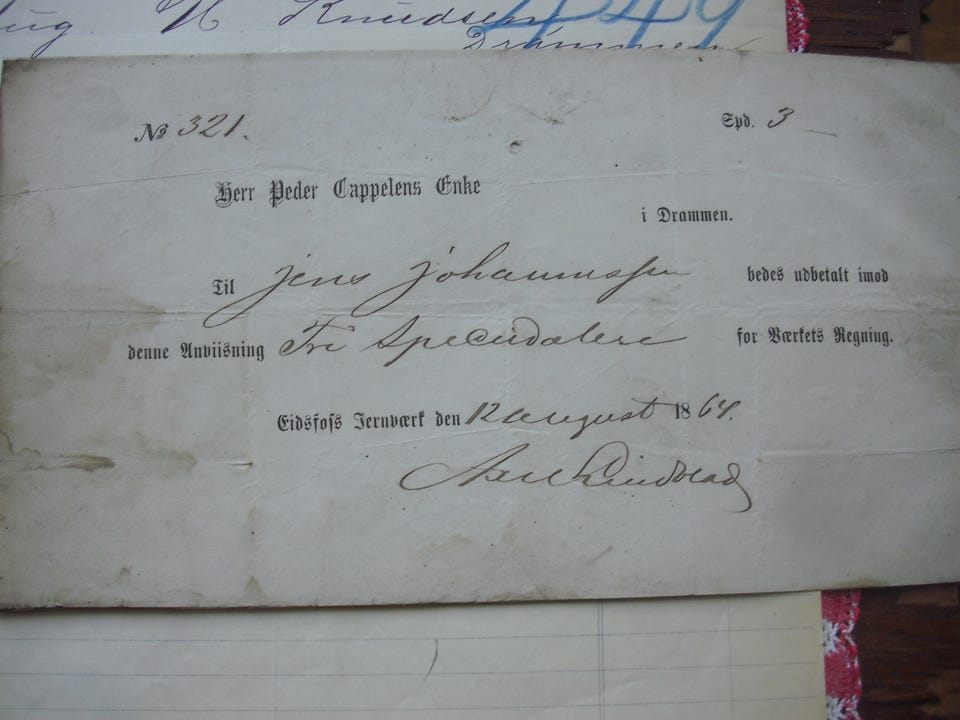 N. Knudsen 449
Drammen
No 321.
Spd. 3
Herr Peder Cappelens Enke
i Drammen.
Til Jens Johannessen bedes udbetalt imod
denne Anviisning Tre Speciedalere for Værkets Regning.
Eidsfoss Jernværk den 12 August 1864.
Axel Lindblad